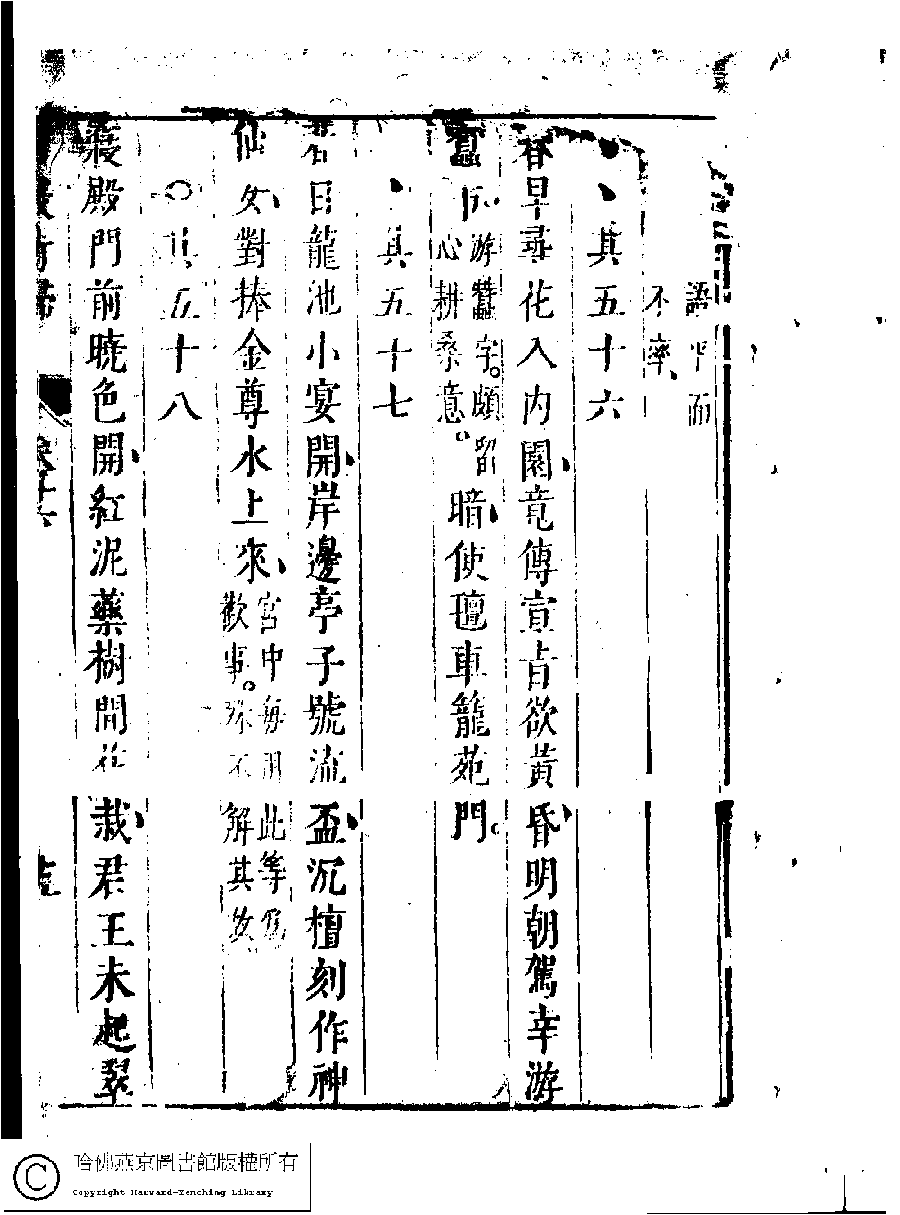 語平而
不率
其五十六
春早尋花入内園竟傳宣旨欲黃昏明朝駕幸游
蠶市
游蠶字頗留
心耕桑意
暗使氊車籠苑門
其五十七
春日龍池小宴開岸邊亭子號流盃沉檀刻作神
仙女對捧金尊水上來
宮中每用此等爲
歡事殊不解其故
其五十八
殿門前曉色開紅泥藥樹間花栽君王未起翠
哈佛燕京圖書館版權所有
Copyright Harvard-Yenching Library